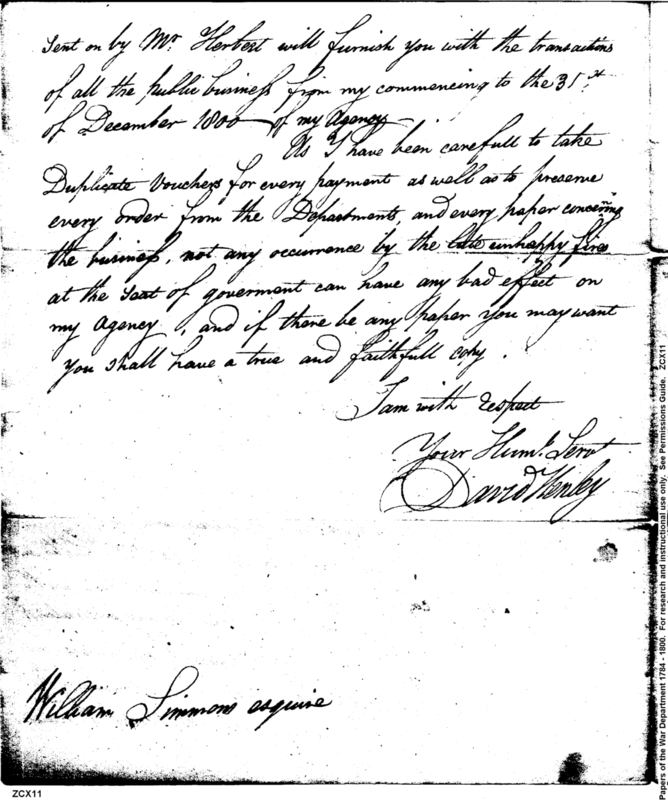 sent on by Mr. Herbert will furnish you with the transactions
of all the public business from my commencing to the 31st.
of December 1800 of my Agency
As I have been carefull to take
Duplicate Vouchers for every payment as well as to preserve
every order from the Departments, and every paper concerning
the business, not any occurrence by the late unhappy fires
at the seat of goverment can have any bad effect on
my Agency, and if there be any paper you may want
you shall have a true and faithfull copy.
I am with respect
Your Humb. Servt
David Henley
William Simmons esquire
ZCX11
Papers of the War Department 1784 - 1800. For research and instructional use only. See Permissions Guide. ZCX11